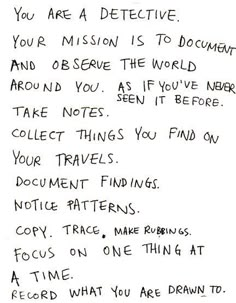 YOU ARE A DETECTIVE.
YOUR MISSION IS TO DOCUMENT
AND OBSERVE THE WORLD
AROUND YOU. AS IF YOU'VE NEVER
SEEN IT BEFORE.
TAKE NOTES.
COLLECT THINGS YOU FIND ON
YOUR TRAVELS.
DOCUMENT FINDINGS.
NOTICE PATTERNS.
COPY. TRACE. MAKE RUBBINGS.
FOCUS ON ONE THING AT
A TIME.
RECORD WHAT YOU ARE DRAWN TO.